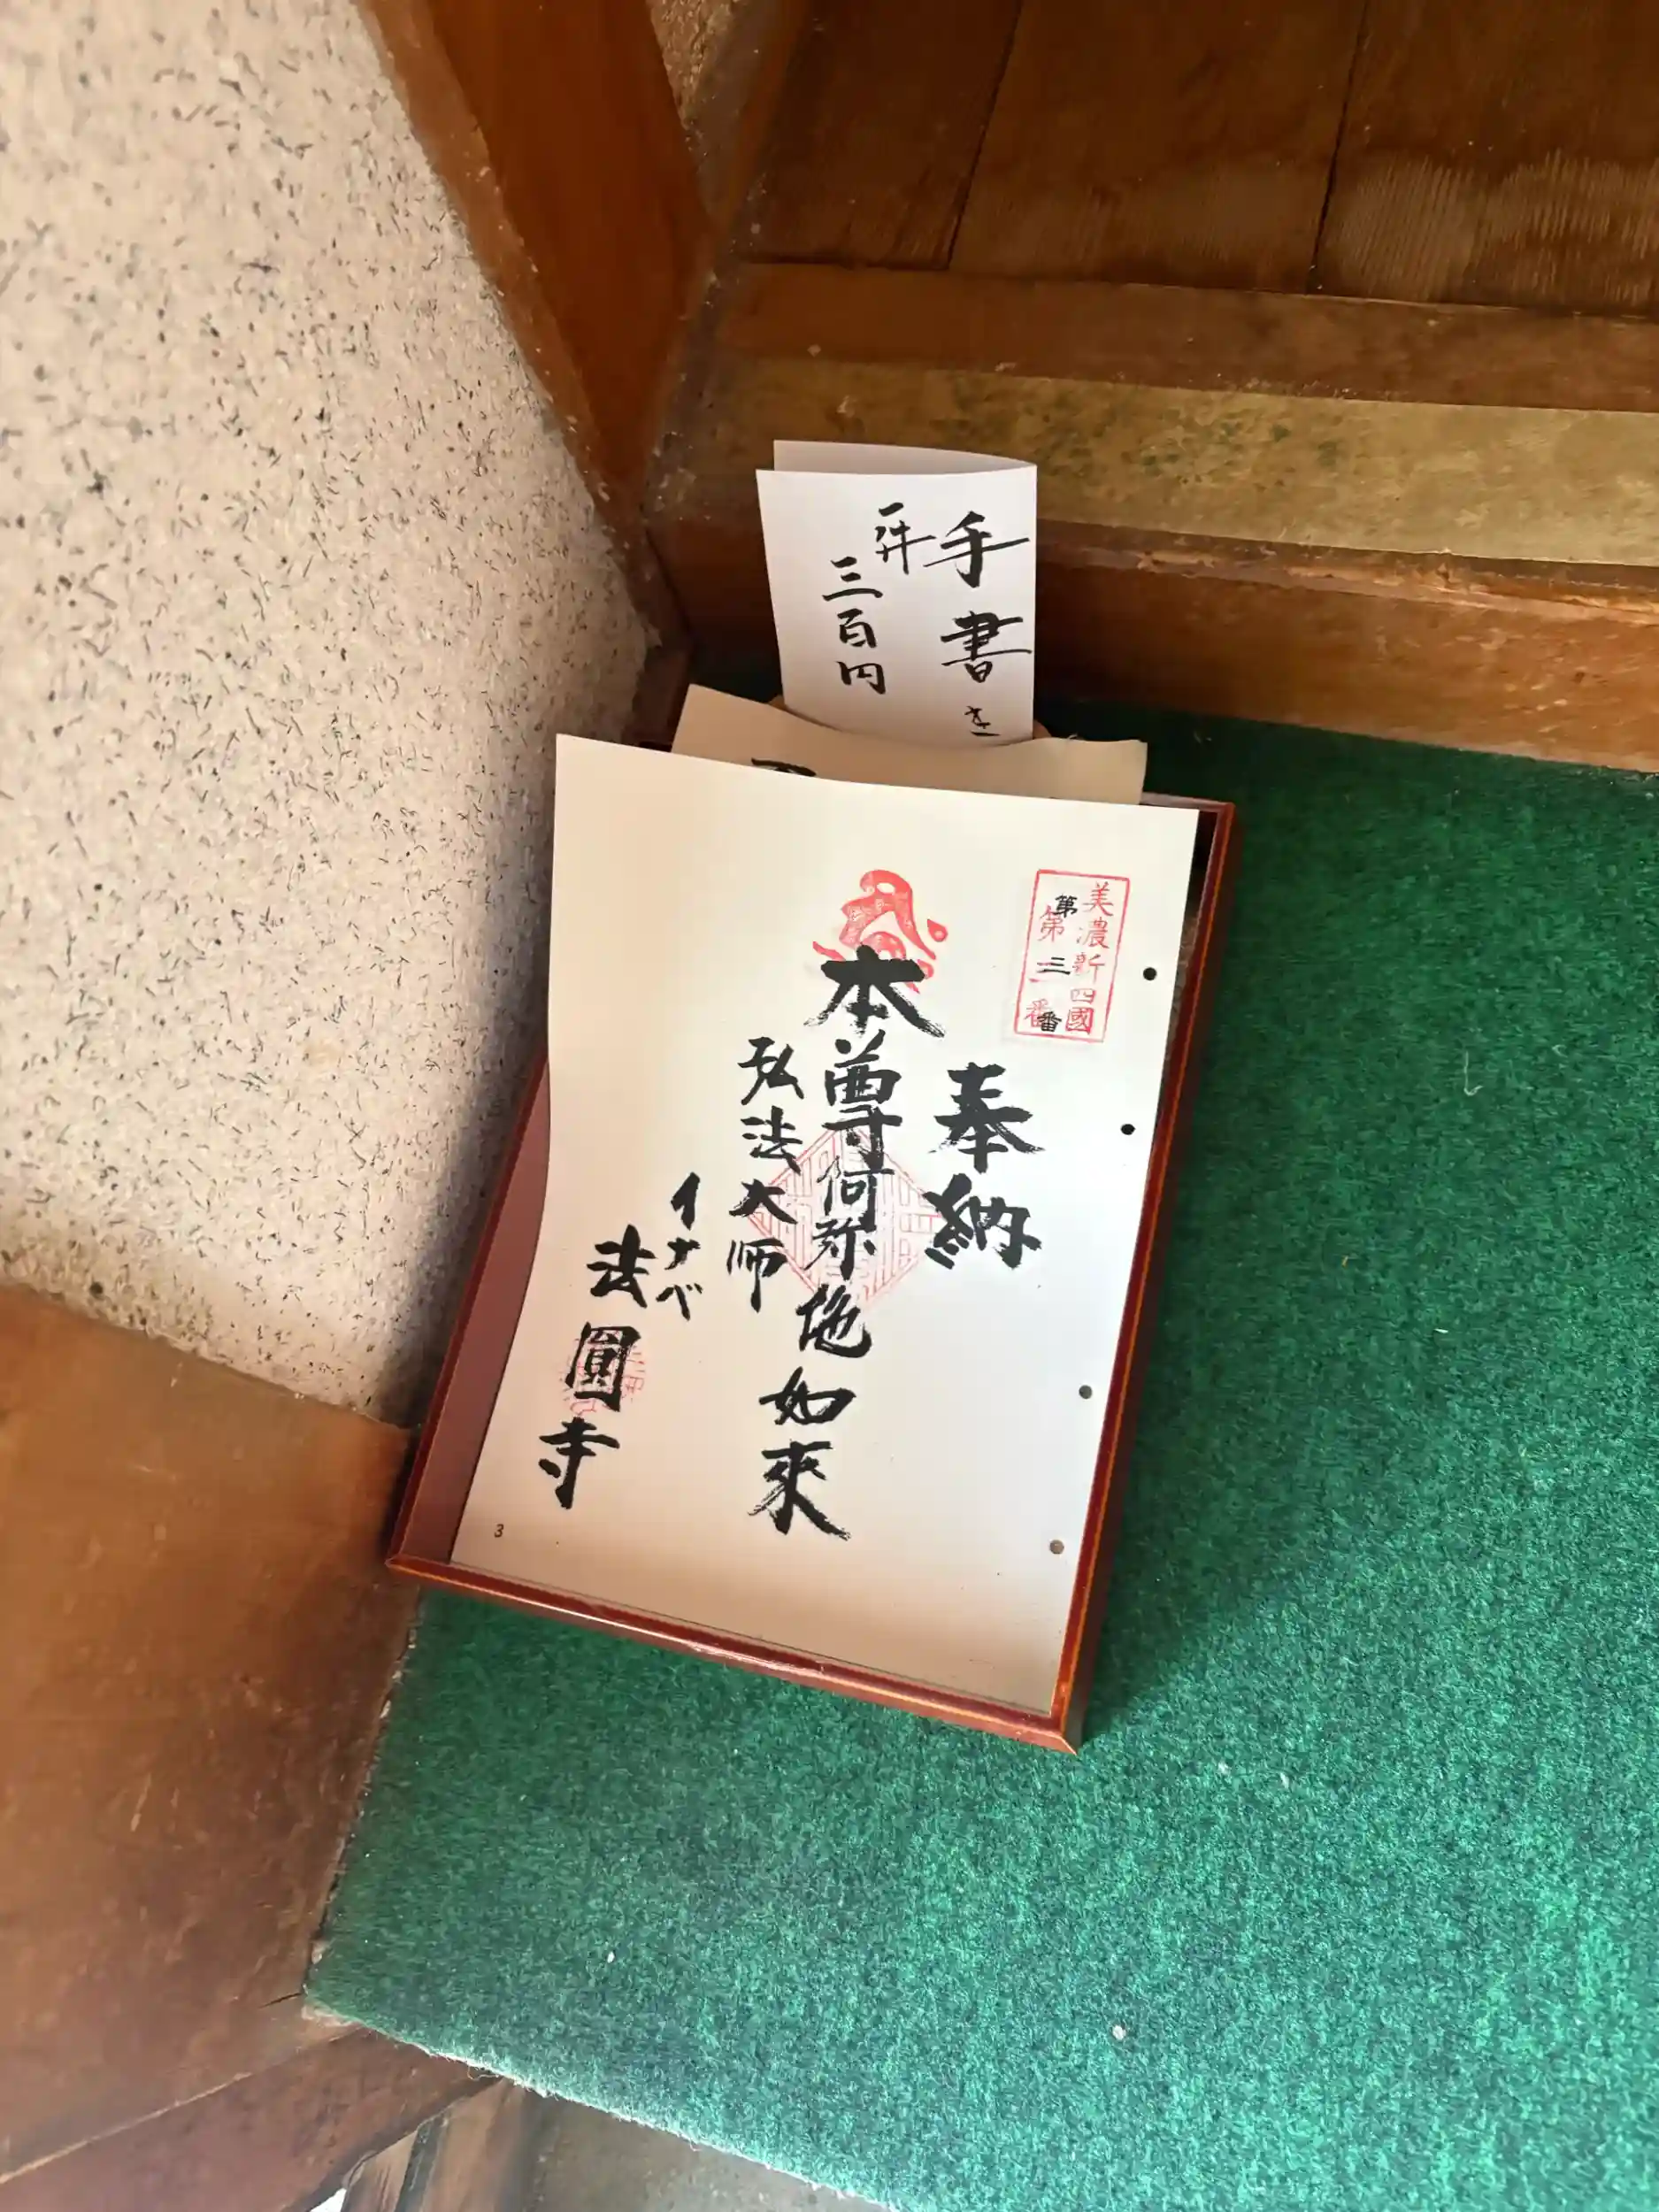 手書き
一冊
三百円
美濃新四國
第三番
奉納
本尊阿弥陀如來
弘法大师
イナベ
法圓寺
3